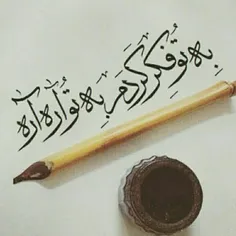 به تو فکر کردم به تو آره آره